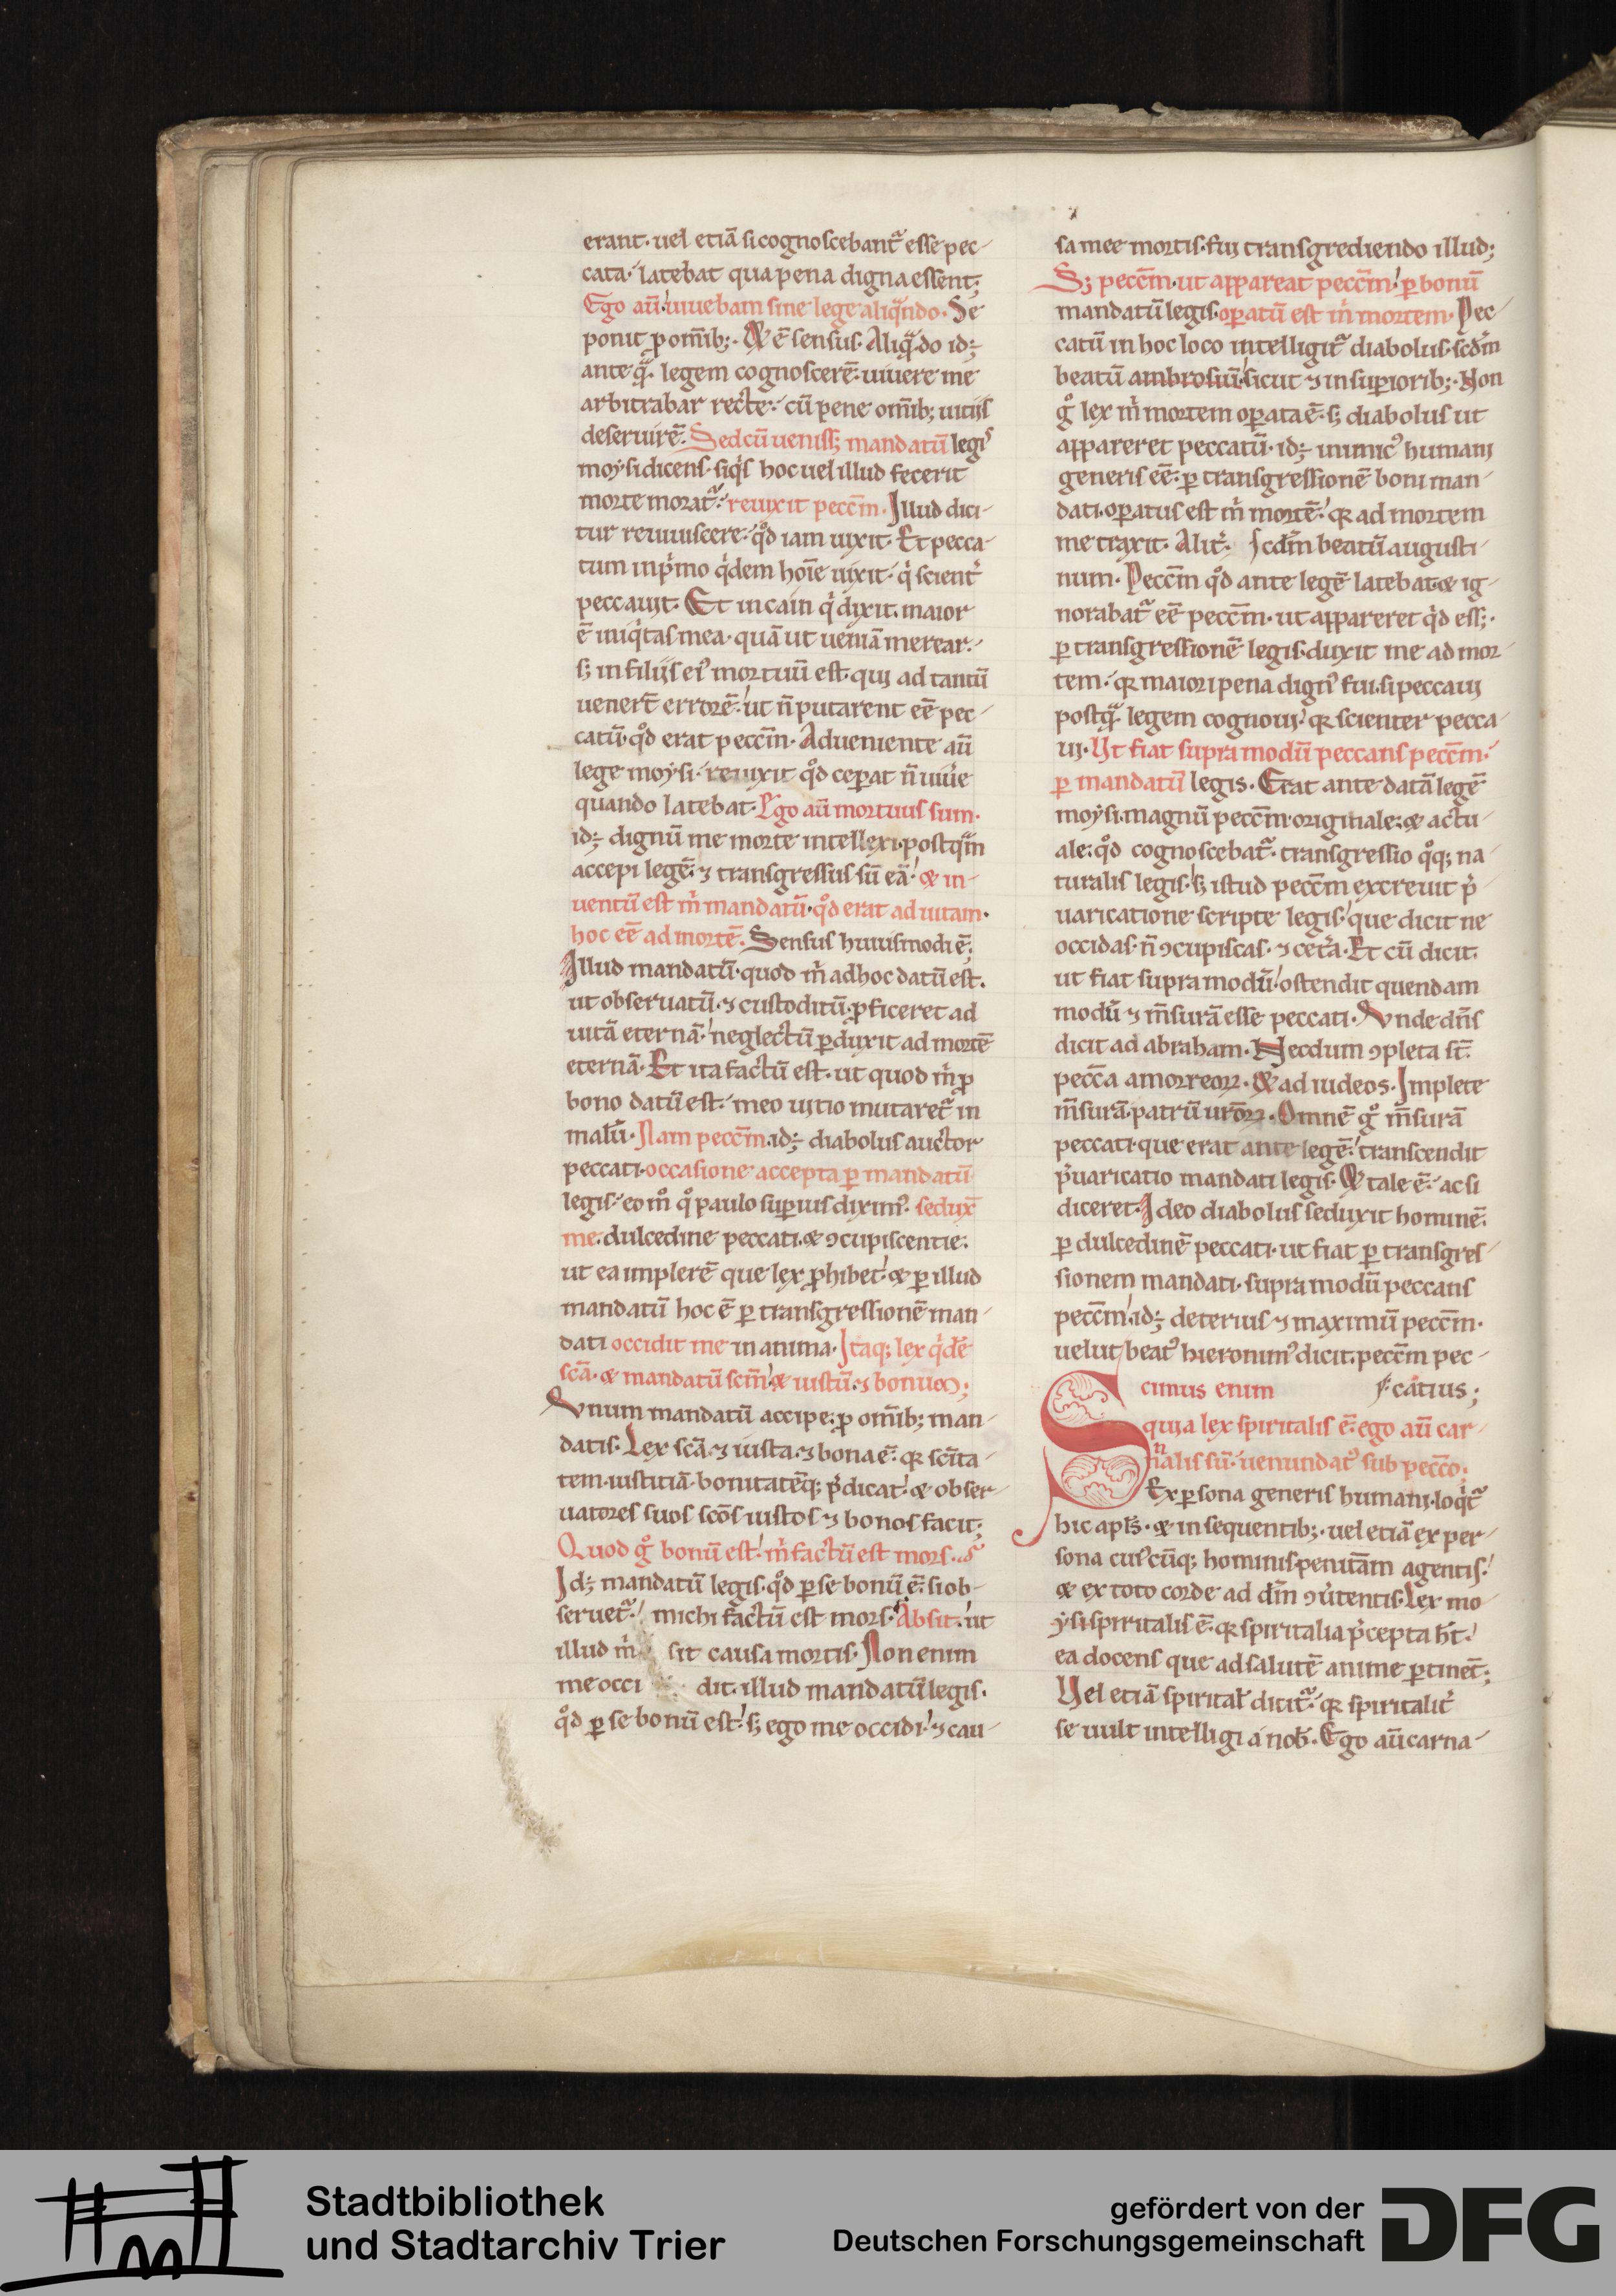 erant. uel etiā si cognoscebant᷑ esse pec-
cata. latebat qua pena digna essent;
Ego aū uiuebam sine lege aliqͣndo. Se
ponit ꝓ om̅ib;. Et ē sensus. Aliqͣ́do id;
ante qͣ̄ legem cognoscerē. uiuere me
arbitrabar recte. cū pene om̅ib; uitiis
deseruirē. Sed cū ueniss; mandatū legis
moẏsi dicens. siq̇s hoc uel illud fecerit
morte morat᷑. reuixit pecc̄m. Illud dici-
tur reuiuiscere. qͦd iam uixit. Et pecca-
tum in pͥmo qͥdem hoīe uixit. qͥ scient᷑
peccauit. Et in cain qͥ dixit. maior
ē iniqͥtas mea. quā ut ueniā merear.
s; in filiis eiꝰ mortuū est. qui ad tantū
uener̄t errorē. ut n̄ putarent eē pec-
catū. qͦd erat pecc̄m. Adueniente aū
lege moẏsi. reuixit qͦd ceꝑat n̄ uiue
quando latebat. Ego aū mortuus sum.
id; dignū me morte intellexi. postqͣm
accepi legē. ⁊ transgressus sū eā. & in-
uentū est m̍ mandatū. qͦd erat ad uitam.
hoc eē ad mortē. Sensus huiusmodi ē;
Illud mandatū. quod m̍ ad hoc datū est.
ut obseruatū. ⁊ custoditū. ꝓficeret ad
uitā eternā. neglectū ꝑduxit ad mortē
eternā. Et ita factū est. ut quod m̍ ꝓ
bono datū est. meo uitio mutaret᷑ in
malū. Nam pecc̄m. id; diabolus auctor
peccati. occasione accepta ꝑ mandatū
legis. eo mͦ qͦ paulo suꝑius diximꝰ. sedux̄
me. dulcedine peccati. & ꝯcupiscentie.
ut ea implerē que lex ꝓhibet. & ꝑ illud
mandatū hoc ē ꝑ transgressionē man-
dati occidit me in anima. Itaq; lex qͥdē
scā. & mandatū sc̄m. & iustū. ⁊ bonum;
Vnum mandatū accipe. ꝓ om̅ib; man-
datis. Lex scā. ⁊ iusta. ⁊ bona ē. qꝛ sc̄ita-
tem. iustitiā. bonitatēq; p̄dicat. & obser-
uatores suos scōs iustos ⁊ bonos facit;
Quod gͦ bonū est. m̍ factū est mors.
Id; mandatū legis. qͦd ꝑ se bonū ē. si ob-
seruet᷑. michi factū est mors. Absit. ut
illud m̍ sit causa mortis. Non enim
me occidit. illud mandatū legis.
qͦd ꝑ se bonū est. s; ego me occidi. ⁊ cau-
sa mee mortis. fui transgrediendo illud;
S; pecc̄m. ut appareat pecc̄m. ꝑ bonū
mandatū legis. oꝑatū est m̍ mortem. Pec-
catū in hoc loco intelligit᷑ diabolus. scdm̄
beatū ambrosiū. sicut ⁊ in suꝑiorib;. Non
gͦ lex m̍ mortem oꝑata ē. s; diabolus ut
appareret peccatū. id; inimicꝰ humani
generis eē. ꝑ transgressionē boni man-
dati. oꝑatus est m̍ mortē. qꝛ ad mortem
me traxit. Alit̍. scdm̄ beatū augusti-
num. Pecc̄m qͦd ante legē latebat. & ig-
norabat᷑ eē pecc̄m. ut appareret qͥd ess;.
ꝑ transgressionē legis. duxit me ad mor-
tem. qꝛ maiori pena dignꝰ fui. si peccaui
postqͣ̄ legem cognoui. qꝛ scienter pecca-
ui. Ut fiat supra modū peccans pecc̄m.
ꝑ mandatū legis. Erat ante datā legē
moẏsi. magnū pecc̄m. originale. & actu-
ale. qͦd cognoscebat᷑. transgressio qͦq; na-
turalis legis. s; istud pecc̄m excreuit p̄-
uaricatione scripte legis. que dicit ne
occidas. n̄ ꝯcupiscas. ⁊ cet̍a. Et cū dicit.
ut fiat supra modū. ostendit quendam
modū ⁊ m̄surā esse peccati. Vnde dn̄s
dicit ad abraham. Necdum ꝯpleta st̄
pecc̄a amorreoꝝ. Et ad iudeos. Implete
m̄surā. patrū ur̄oꝝ. Omnē gͦ m̄surā
peccati. que erat ante legē. transcendit
p̄uaricatio mandati legis. Et tale ē. ac si
diceret. Ideo diabolus seduxit hominē.
ꝑ dulcedinē peccati. ut fiat ꝑ transgres-
sionem mandati. supra modū peccans
pecc̄m. id; deterius ⁊ maximū pecc̄m.
uelut beatꝰ hieronimꝰ dicit. pecc̄m pec-
cimus enim catius;
S quia lex spiritalis ē. ego aū car-
nalis sū. uenundatꝰ sub pecc̄o;
Ex ꝑsona generis humani. loqͥt᷑
hic apl̄s. & in sequentib;. uel etiā ex per-
sona cuiꝰcūq; hominis penitām agentis.
& ex toto corde ad dm̄ ꝯu̍tentis. Lex mo-
ẏsi spiritalis ē. qꝛ spiritalia p̄cepta ht̄.
ea docens que ad salutē anime ꝑtinet;
Vel etiā spiritał dicit᷑. qꝛ spiritalit̍
se uult intelligi a nob̄. Ego aū carna-
Stadtbibliothek
und Stadtarchiv Trier
gefördert von der
Deutschen Forschungsgemeinschaft
DFG